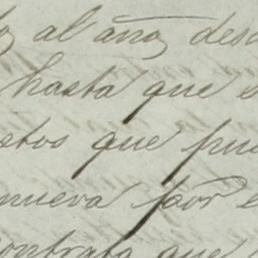 al año, desd
hasta que s
etos que pue
nueva por e
contrato que